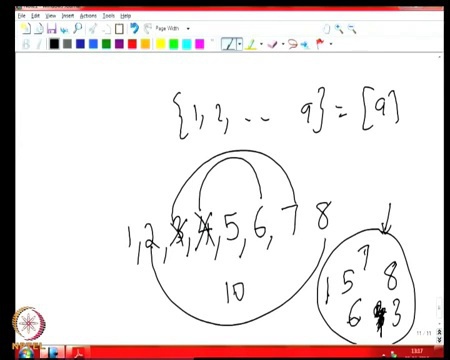 File Edit View Insert Actions Tools Help
Page Width
{1, 2, .. 9} = [9]
1, 2, 3, 4, 5, 6, 7 8
10
7
1 5 8
6 3
11 / 11
13:17